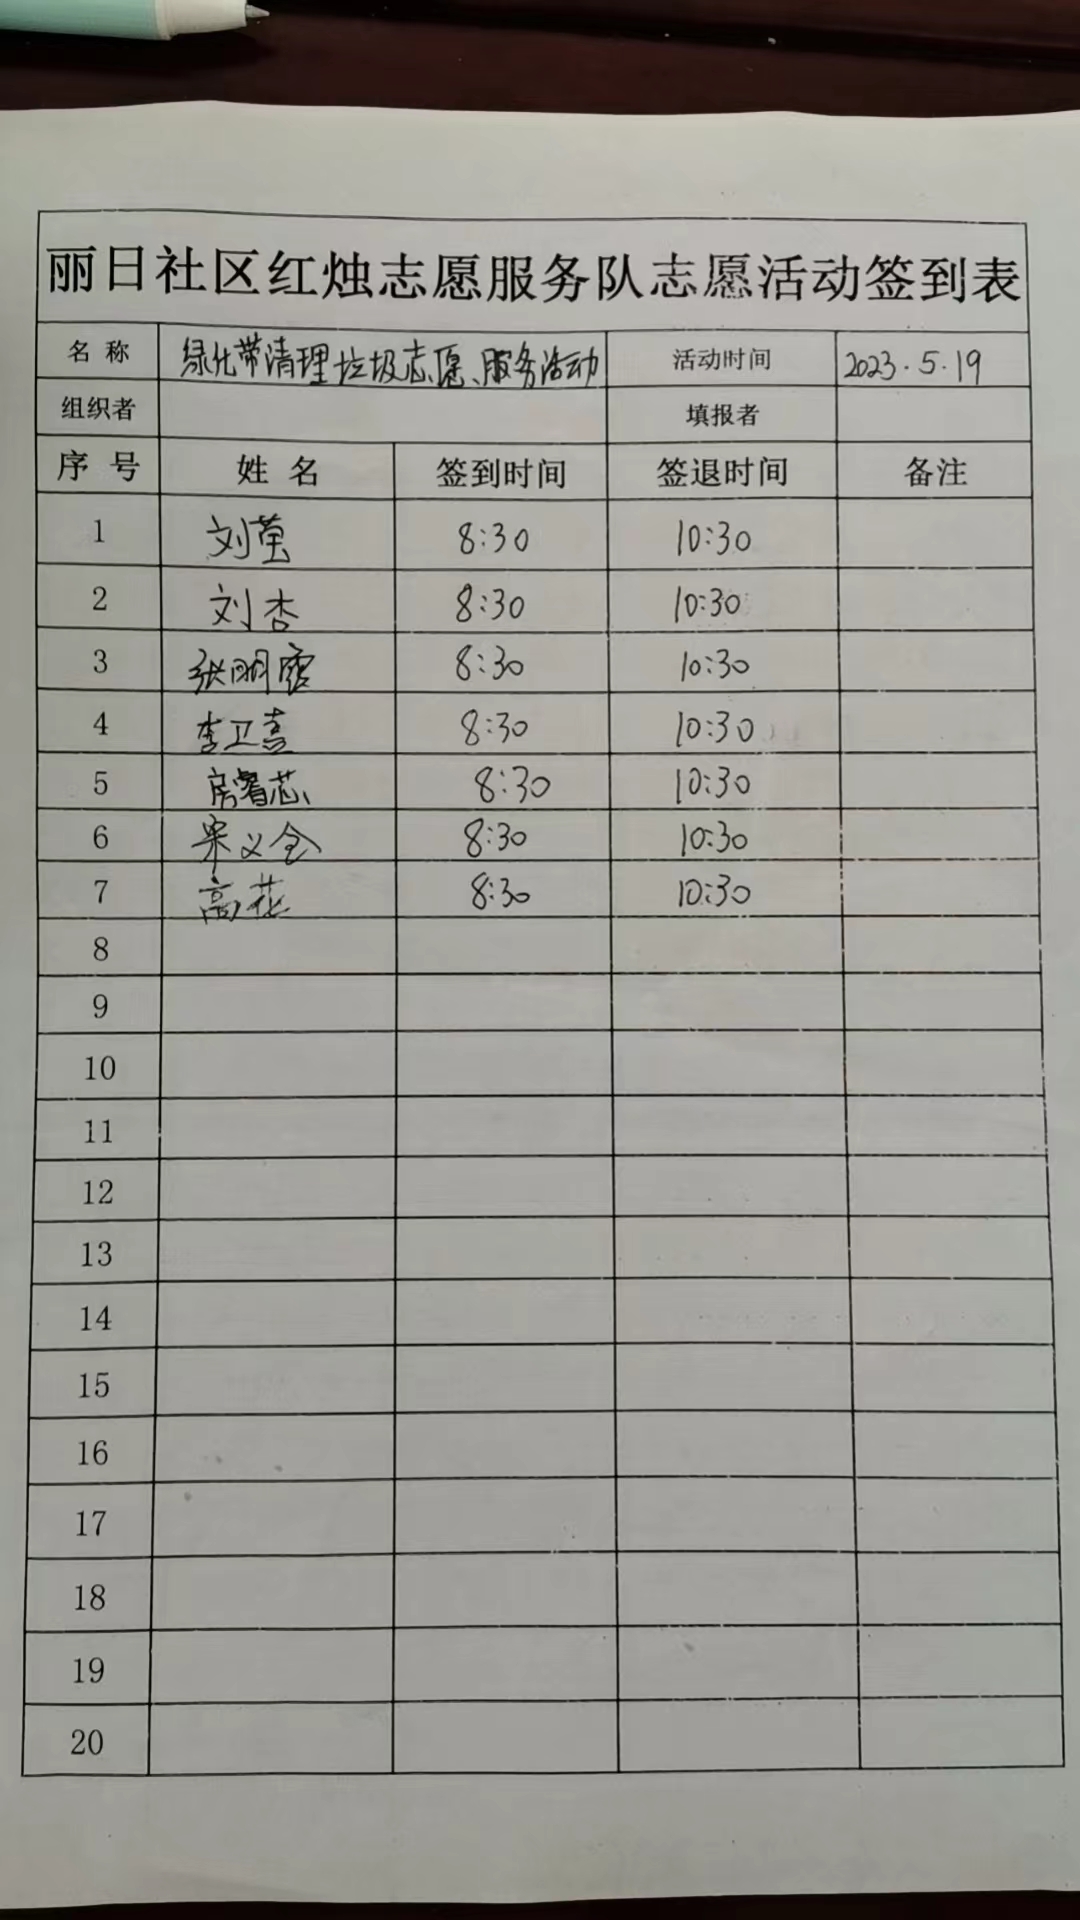 丽日社区红烛志愿服务队志愿活动签到表
名 称 绿化带清理垃圾志愿服务活动 活动时间 2023.5.19
组织者 填报者
序 号 姓 名 签到时间 签退时间 备注
1 刘萤 8:30 10:30
2 刘杏 8:30 10:30
3 张明霞 8:30 10:30
4 李卫喜 8:30 10:30
5 8:30 10:30
6 8:30 10:30
7 高花 8:30 10:30
8
9
10
11
12
13
14
15
16
17
18
19
20